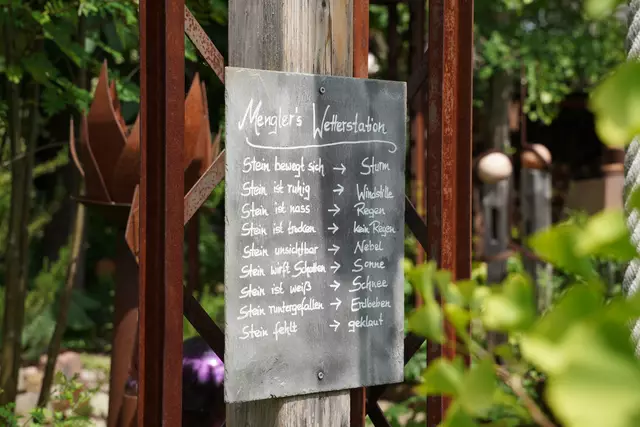 Mengler's Wetterstation
Stein bewegt sich → Sturm
Stein ist ruhig → Windstille
Stein ist nass → Regen
Stein ist trocken → kein Regen
Stein unsichtbar → Nebel
Stein wirft Schatten → Sonne
Stein ist weiß → Schnee
Stein runtergefallen → Erdbeben
Stein fehlt → geklaut